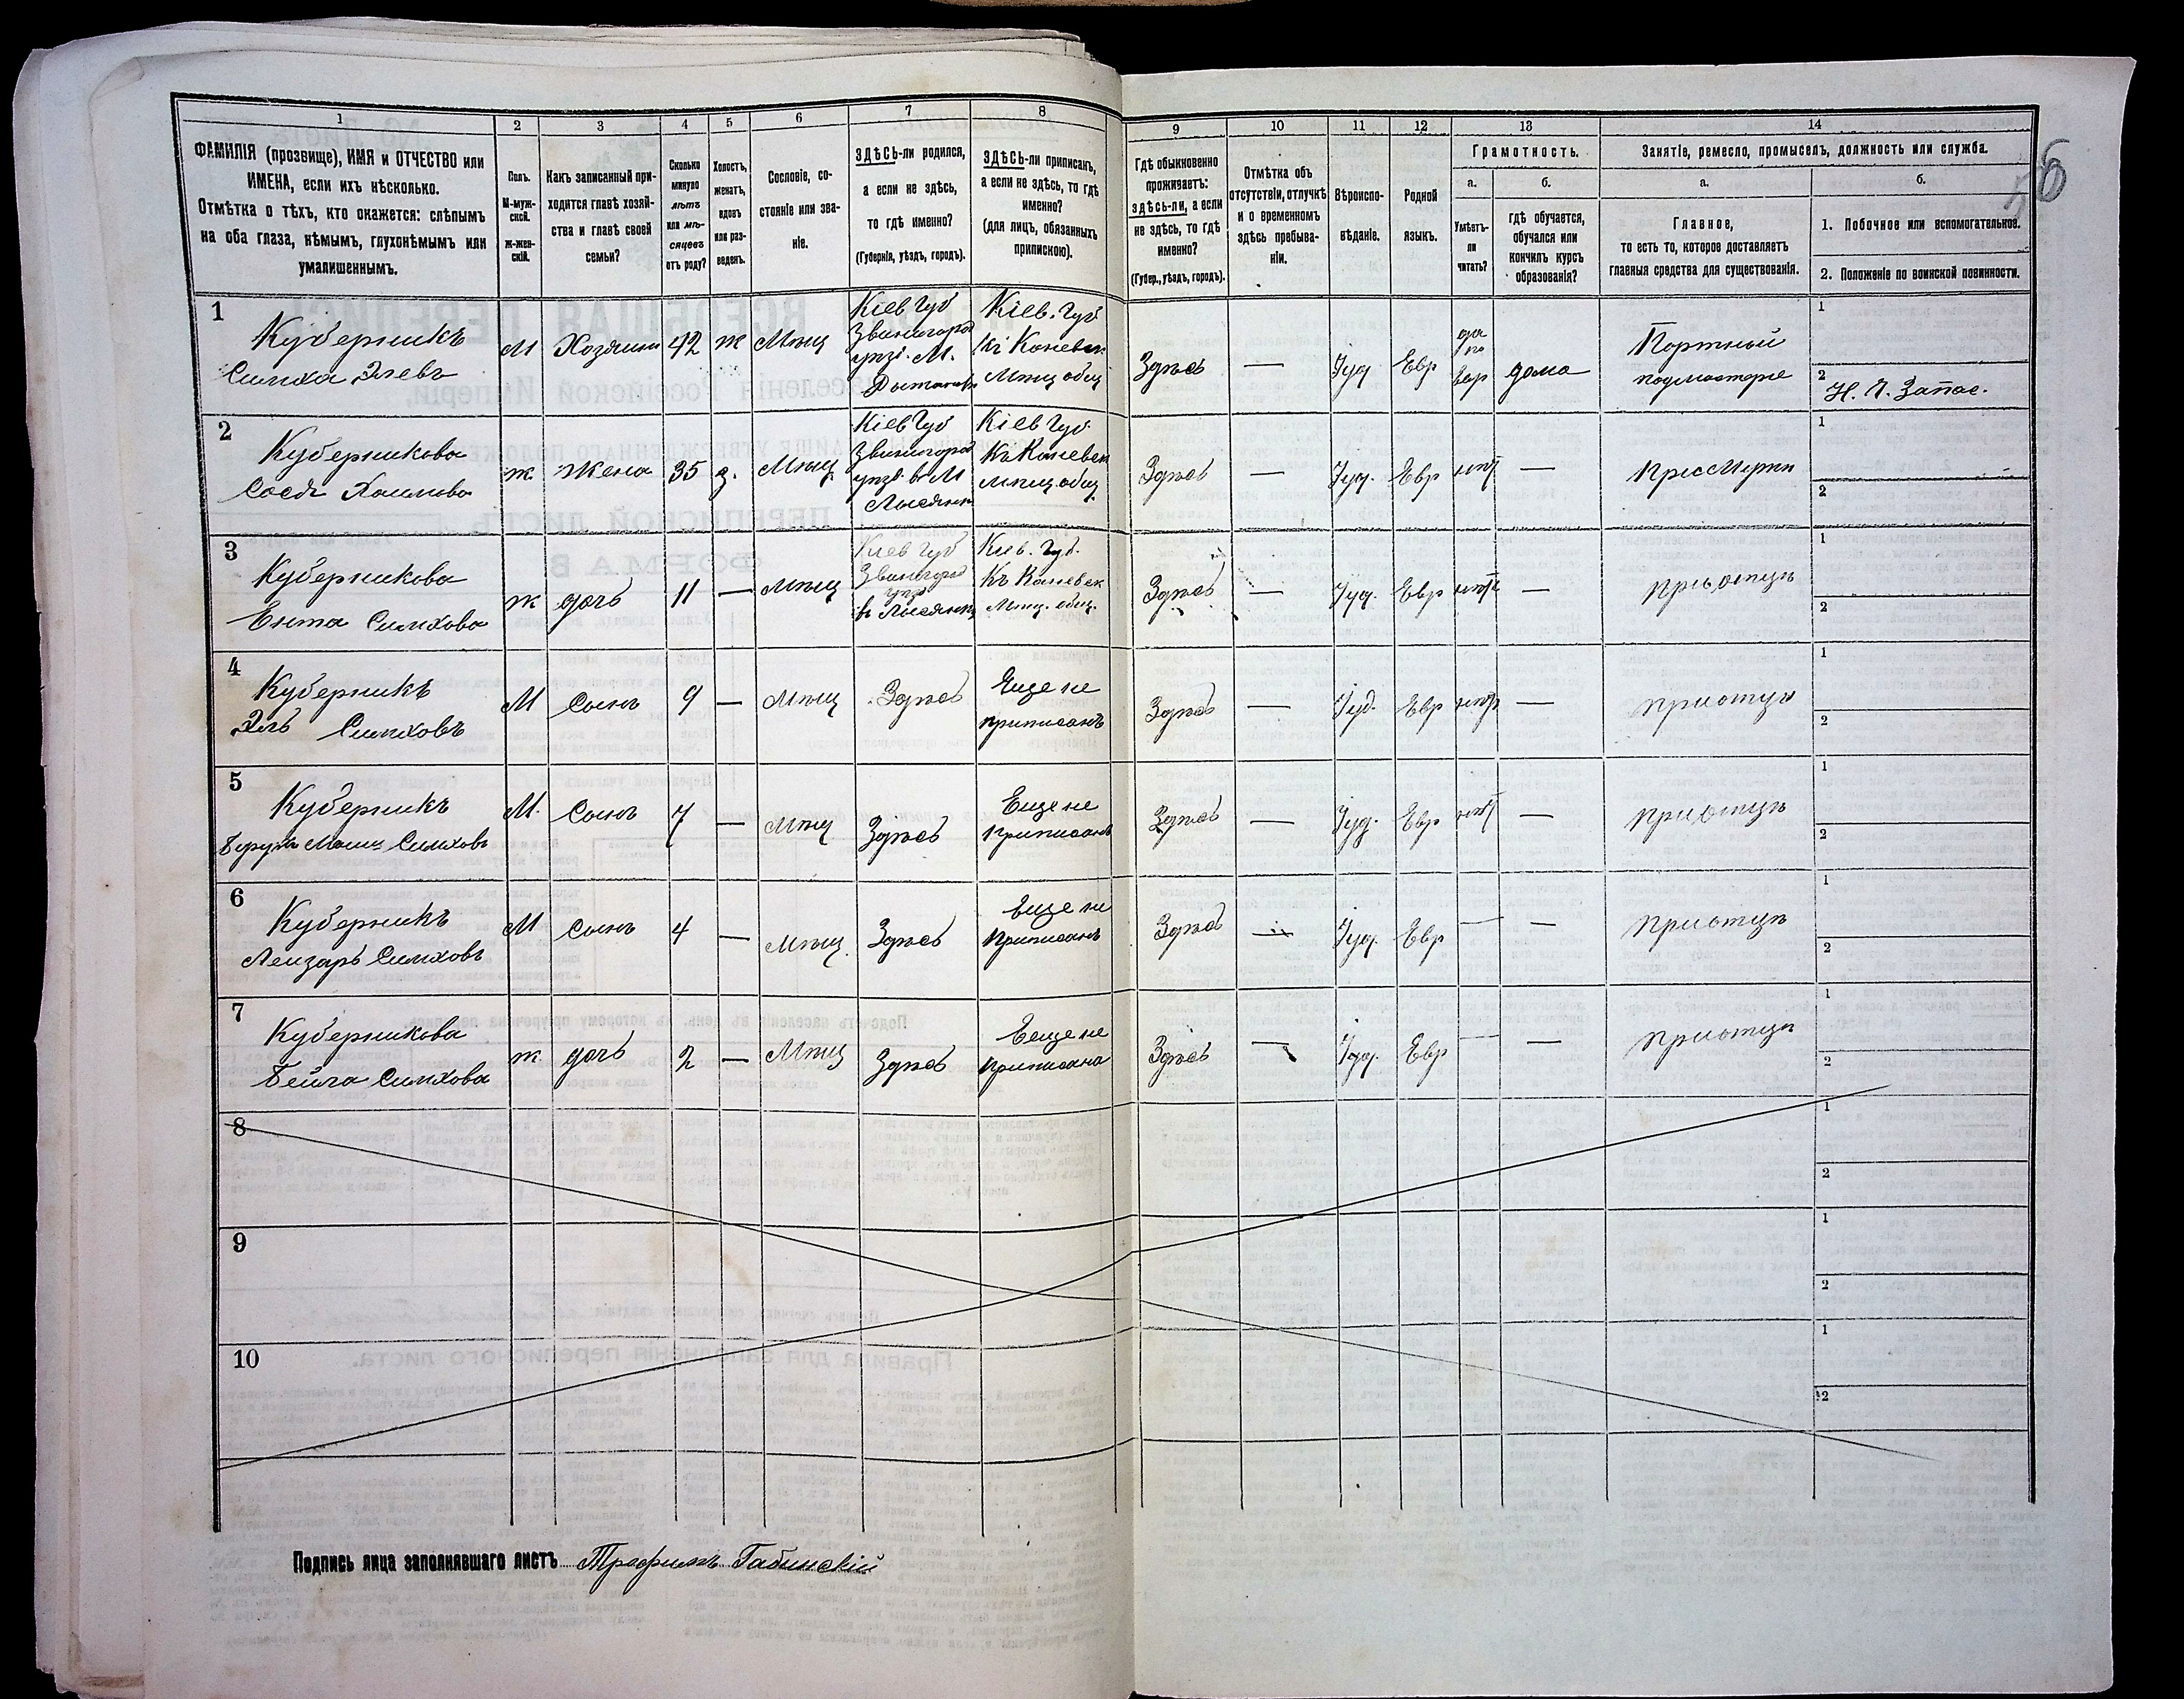 1
2
3
4
5
6
7
8
9
10
11
12
13
14
ФАМИЛІЯ (прозвище), ИМЯ и ОТЧЕСТВО или
ИМЕНА, если ихъ нѣсколько.
Отмѣтка о тѣхъ, кто окажется: слѣпымъ
на оба глаза, нѣмымъ, глухонѣмымъ или
умалишеннымъ.
Полъ.
М-муж-
ской.
Ж-жен-
скій.
Какъ записанный при-
ходится главѣ хозяй-
ства и главѣ своей
семьи?
Сколько
минуло
лѣтъ
или мѣ-
сяцевъ
отъ роду?
Холостъ,
женатъ,
вдовъ
или раз-
веденъ.
Сословіе, со-
стояніе или зва-
ніе.
ЗДѢСЬ-ли родился,
а если не здѣсь,
то гдѣ именно?
(Губернія, уѣздъ, городъ).
ЗДѢСЬ-ли приписанъ,
а если не здѣсь, то гдѣ
именно?
(для лицъ, обязанныхъ
припискою).
Гдѣ обыкновенно
проживаетъ:
здѣсь-ли, а если
не здѣсь, то гдѣ
именно?
(Губер., уѣздъ, городъ).
Отмѣтка объ
отсутствіи, отлучкѣ
и о временномъ
здѣсь пребыва-
ніи.
Вѣроиспо-
вѣданіе.
Родной
языкъ.
Грамотность.
а.
б.
Умѣетъ-
ли
читать?
гдѣ обучается,
обучался или
кончилъ курсъ
образованія?
Занятіе, ремесло, промыселъ, должность или служба.
а.
б.
Главное,
то есть то, которое доставляетъ
главныя средства для существованія.
1. Побочное или вспомогательное.
2. Положеніе по воинской повинности.
1
Куберникъ
Симха Элевъ
М
Хозяинъ
42
ж
Мѣщ
Кіев Губ
Звенигород
уѣзд. М.
Кіев. Губ
Къ Каневск
Мѣщ общ
Здѣсь
—
Іуд
Евр
да
по
Евр
дома
Портной
подмастерье
1
2
Н. Ч. Запас.
2
Куберникова
Хаимова
ж
Жена
35
з.
Мѣщ
Кіев Губ
Звенигород
уѣзд. в М
Лысянкѣ
Кіев Губ.
Къ Каневск
мѣщ. общ
Здѣсь
—
Іуд.
Евр
нѣт
—
При Мужѣ
1
2
3
Куберникова
Ента Симхова
ж
дочь
11
—
Мѣщ
Кіев Губ
Звенигород
уѣзд
в Лысянкѣ
Кіев. Губ.
Къ Каневск
Мѣщ. общ.
Здѣсь
—
Іуд.
Евр
нѣт
—
При отцѣ
1
2
4
Куберникъ
Эль Симховъ
М
Сынъ
9
—
Мѣщ
Здѣсь
Еще не
приписанъ
Здѣсь
—
Іуд.
Евр
нѣт
—
При отцѣ
1
2
5
Куберникъ
Симховъ
М.
Сынъ
7
—
Мѣщ
Здѣсь
Еще не
Приписанъ
Здѣсь
—
Іуд.
Евр
нѣт
—
При отцѣ
1
2
6
Куберникъ
Лейзаръ Симховъ
М
Сынъ
4
—
Мѣщ.
Здѣсь
Еще не
Приписанъ
Здѣсь
—
Іуд.
Евр
—
—
При отцѣ
1
2
7
Куберникова
Бейла Симхова
ж
дочь
2
—
Мѣщ
Здѣсь
Еще не
приписана
Здѣсь
—
Іуд.
Евр
—
—
При отцѣ
1
2
8
1
2
9
1
2
10
1
2
Подпись лица заполнявшаго листъ Трофимъ Габинскій